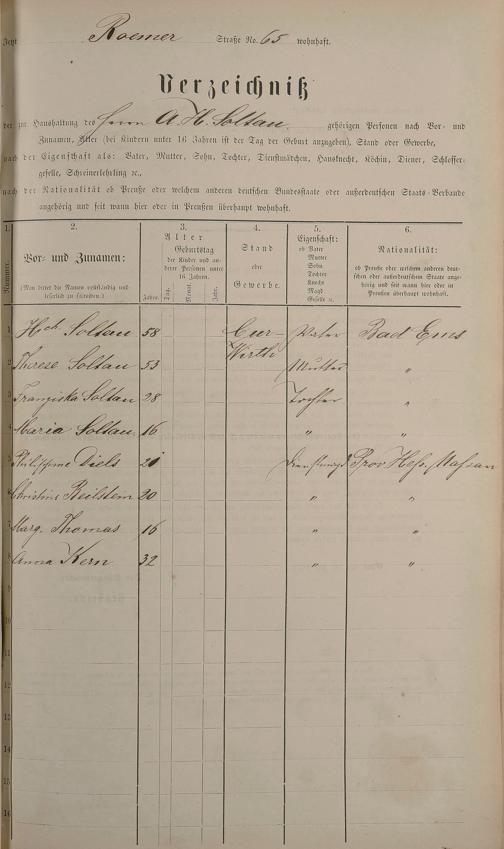 Jetzt Roemer Straße No. 65 wohnhaft.
Verzeichniß
der zur Haushaltung des Herrn A. H. Soltau gehörigen Personen nach Vor- und
Zunamen, Alter (bei Kindern unter 16 Jahren ist der Tag der Geburt anzugeben), Stand oder Gewerbe,
nach der Eigenschaft als: Vater, Mutter, Sohn, Tochter, Dienstmädchen, Hausknecht, Köchin, Diener, Schlosser-
geselle, Schreinerlehrling ꝛc.,
nach der Nationalität ob Preuße oder welchem anderen deutschen Bundesstaate oder außerdeutschen Staats-Verbande
angehörig und seit wann hier oder in Preußen überhaupt wohnhaft.
1. 2. 3. 4. 5. 6.
Nummer.
Vor- und Zunamen:
(Man bittet die Namen vollständig und
leserlich zu schreiben.)
Alter
Geburtstag
der Kinder und an-
derer Personen unter
16 Jahren.
Jahre. Tag. Monat. Jahr.
Stand
oder
Gewerbe.
Eigenschaft:
ob Vater
Mutter
Sohn
Tochter
Knecht
Magd
Geselle ꝛc.
Nationalität:
ob Preuße oder welchem anderen deut-
schen oder außerdeutschen Staate ange-
hörig und seit wann hier oder in
Preußen überhaupt wohnhaft.
1 Hch. Soltau 58 Cur- Vater Bad Ems
Wirth
2 Therese Soltau 53 Mutter "
3 Franziska Soltau 28 Tochter "
4 Maria Soltau 16 " "
5 Philippine Diels 21 Dienstmgd Prov Hess. Nassau
6 Christine Beilstein 20 " "
7 Marg. Thomas 16 " "
8 Anna Kern 32 " "
9
10
11
12
13
14
15
16